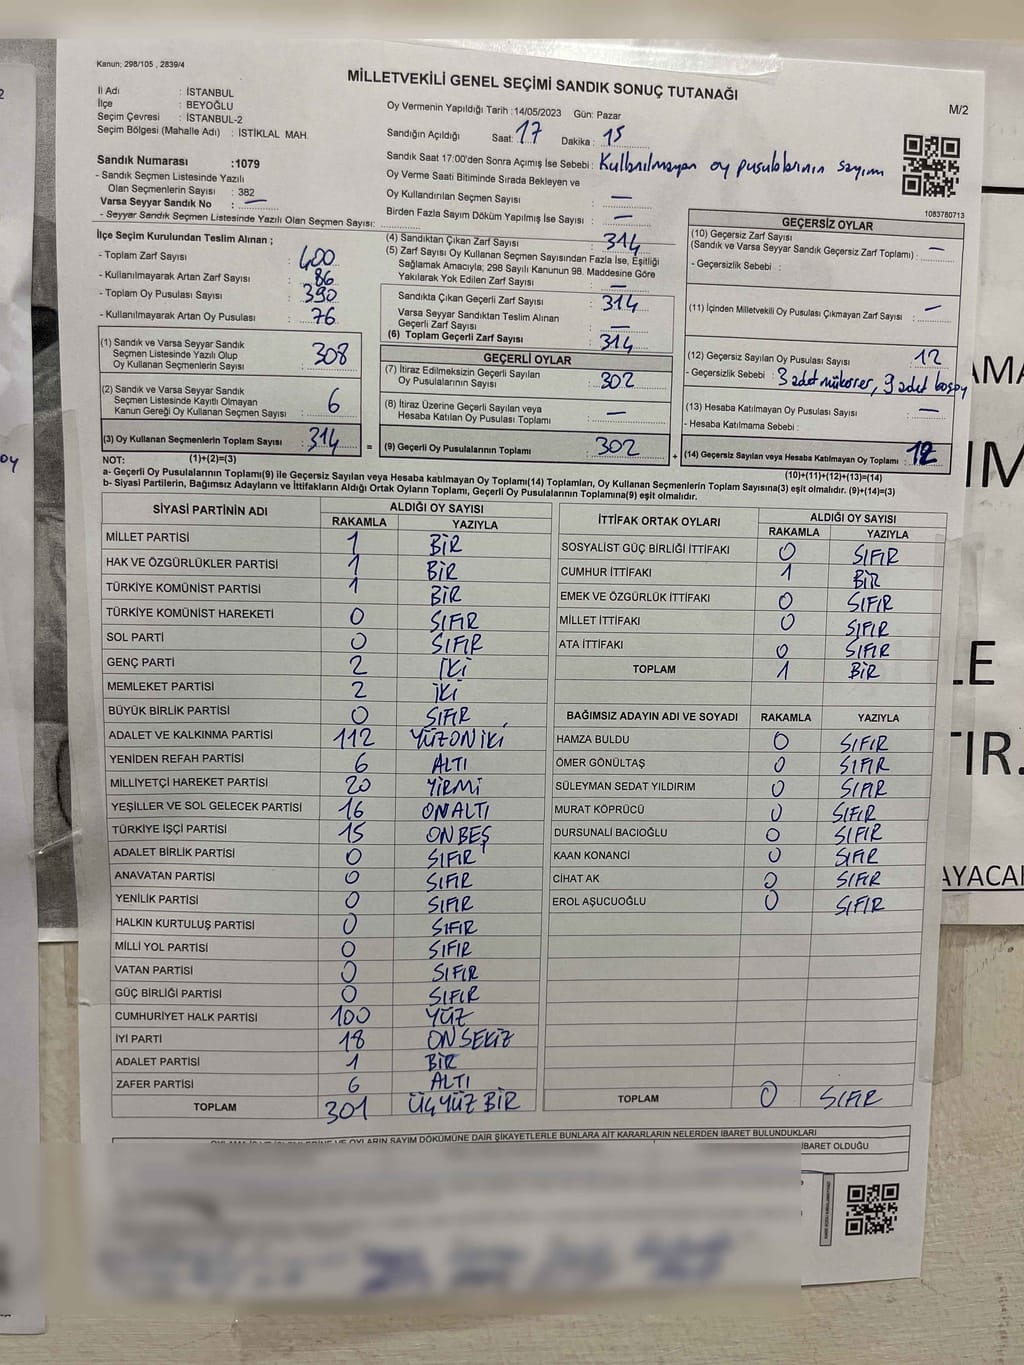 Kanun: 298/105 , 2839/4
MİLLETVEKİLİ GENEL SEÇİMİ SANDIK SONUÇ TUTANAĞI
M/2
İl Adı : İSTANBUL
İlçe : BEYOĞLU
Seçim Çevresi : İSTANBUL-2
Seçim Bölgesi (Mahalle Adı) : İSTİKLAL MAH.
Sandık Numarası :1079
- Sandık Seçmen Listesinde Yazılı
Olan Seçmenlerin Sayısı : 382
Varsa Seyyar Sandık No : —
- Seyyar Sandık Seçmen Listesinde Yazılı Olan Seçmen Sayısı:
Oy Vermenin Yapıldığı Tarih : 14/05/2023 Gün: Pazar
Sandığın Açıldığı Saat: 17 Dakika : 15
Sandık Saat 17:00'den Sonra Açımış İse Sebebi : Kullanılmayan oy pusulalarının sayımı
Oy Verme Saati Bitiminde Sırada Bekleyen ve
Oy Kullandırılan Seçmen Sayısı : —
Birden Fazla Sayım Döküm Yapılmış İse Sayısı : —
1083780713
İlçe Seçim Kurulundan Teslim Alınan ;
- Toplam Zarf Sayısı : 400
- Kullanılmayarak Artan Zarf Sayısı : 86
- Toplam Oy Pusulası Sayısı : 390
- Kullanılmayarak Artan Oy Pusulası : 76
(1) Sandık ve Varsa Seyyar Sandık
Seçmen Listesinde Yazılı Olup
Oy Kullanan Seçmenlerin Sayısı : 308
(2) Sandık ve Varsa Seyyar Sandık
Seçmen Listesinde Kayıtlı Olmayan
Kanun Gereği Oy Kullanan Seçmen Sayısı : 6
(3) Oy Kullanan Seçmenlerin Toplam Sayısı : 314
(4) Sandıktan Çıkan Zarf Sayısı : 314
(5) Zarf Sayısı Oy Kullanan Seçmen Sayısından Fazla İse, Eşitliği
Sağlamak Amacıyla; 298 Sayılı Kanunun 98. Maddesine Göre
Yakılarak Yok Edilen Zarf Sayısı : —
Sandıkta Çıkan Geçerli Zarf Sayısı : 314
Varsa Seyyar Sandıktan Teslim Alınan
Geçerli Zarf Sayısı : —
(6) Toplam Geçerli Zarf Sayısı : 314
GEÇERLİ OYLAR
(7) İtiraz Edilmeksizin Geçerli Sayılan
Oy Pusulalarının Sayısı : 302
(8) İtiraz Üzerine Geçerli Sayılan veya
Hesaba Katılan Oy Pusulası Toplamı : —
= (9) Geçerli Oy Pusulalarının Toplamı : 302
GEÇERSİZ OYLAR
(10) Geçersiz Zarf Sayısı
(Sandık ve Varsa Seyyar Sandık Geçersiz Zarf Toplamı) : —
- Geçersizlik Sebebi :
(11) İçinden Milletvekili Oy Pusulası Çıkmayan Zarf Sayısı : —
(12) Geçersiz Sayılan Oy Pusulası Sayısı : 12
- Geçersizlik Sebebi : 3 adet mükerrer, 9 adet boş oy
(13) Hesaba Katılmayan Oy Pusulası Sayısı : —
- Hesaba Katılmama Sebebi :
+ (14) Geçersiz Sayılan veya Hesaba Katılmayan Oy Toplamı : 12
NOT: (1)+(2)=(3)
(10)+(11)+(12)+(13)=(14)
a- Geçerli Oy Pusulalarının Toplamı(9) ile Geçersiz Sayılan veya Hesaba katılmayan Oy Toplamı(14) Toplamları, Oy Kullanan Seçmenlerin Toplam Sayısına(3) eşit olmalıdır. (9)+(14)=(3)
b- Siyasi Partilerin, Bağımsız Adayların ve İttifakların Aldığı Ortak Oyların Toplamı, Geçerli Oy Pusulalarının Toplamına(9) eşit olmalıdır.
SİYASİ PARTİNİN ADI ALDIĞI OY SAYISI
RAKAMLA YAZIYLA
MİLLET PARTİSİ 1 BİR
HAK VE ÖZGÜRLÜKLER PARTİSİ 1 BİR
TÜRKİYE KOMÜNİST PARTİSİ 1 BİR
TÜRKİYE KOMÜNİST HAREKETİ 0 SIFIR
SOL PARTİ 0 SIFIR
GENÇ PARTİ 2 İKİ
MEMLEKET PARTİSİ 2 İKİ
BÜYÜK BİRLİK PARTİSİ 0 SIFIR
ADALET VE KALKINMA PARTİSİ 112 YÜZONİKİ
YENİDEN REFAH PARTİSİ 6 ALTI
MİLLİYETÇİ HAREKET PARTİSİ 20 YİRMİ
YEŞİLLER VE SOL GELECEK PARTİSİ 16 ONALTI
TÜRKİYE İŞÇİ PARTİSİ 15 ONBEŞ
ADALET BİRLİK PARTİSİ 0 SIFIR
ANAVATAN PARTİSİ 0 SIFIR
YENİLİK PARTİSİ 0 SIFIR
HALKIN KURTULUŞ PARTİSİ 0 SIFIR
MİLLİ YOL PARTİSİ 0 SIFIR
VATAN PARTİSİ 0 SIFIR
GÜÇ BİRLİĞİ PARTİSİ 0 SIFIR
CUMHURİYET HALK PARTİSİ 100 YÜZ
İYİ PARTİ 18 ONSEKİZ
ADALET PARTİSİ 1 BİR
ZAFER PARTİSİ 6 ALTI
TOPLAM 301 ÜÇYÜZ BİR
İTTİFAK ORTAK OYLARI ALDIĞI OY SAYISI
RAKAMLA YAZIYLA
SOSYALİST GÜÇ BİRLİĞİ İTTİFAKI 0 SIFIR
CUMHUR İTTİFAKI 1 BİR
EMEK VE ÖZGÜRLÜK İTTİFAKI 0 SIFIR
MİLLET İTTİFAKI 0 SIFIR
ATA İTTİFAKI 0 SIFIR
TOPLAM 1 BİR
BAĞIMSIZ ADAYIN ADI VE SOYADI RAKAMLA YAZIYLA
HAMZA BULDU 0 SIFIR
ÖMER GÖNÜLTAŞ 0 SIFIR
SÜLEYMAN SEDAT YILDIRIM 0 SIFIR
MURAT KÖPRÜCÜ 0 SIFIR
DURSUNALİ BACIOĞLU 0 SIFIR
KAAN KONANCİ 0 SIFIR
CİHAT AK 0 SIFIR
EROL AŞUCUOĞLU 0 SIFIR
TOPLAM 0 SIFIR
VE OYLARIN SAYIM DÖKÜMÜNE DAİR ŞİKAYETLERLE BUNLARA AİT KARARLARIN NELERDEN İBARET BULUNDUKLARI
İBARET OLDUĞU